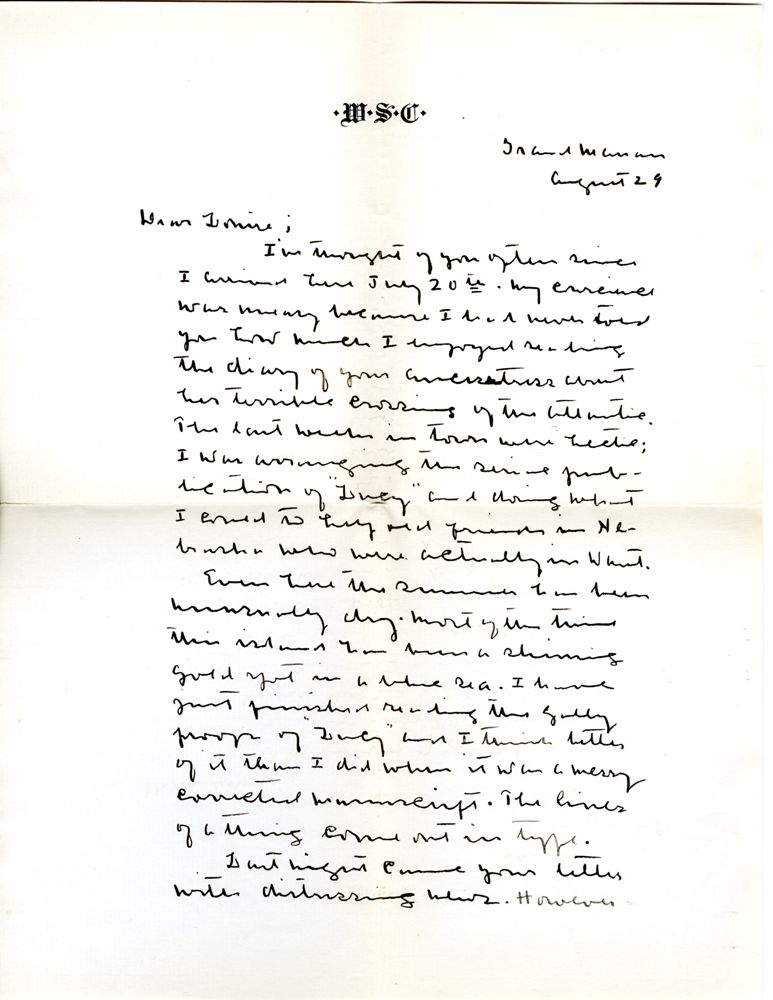 ·W·S·C·
Grand Manan
August 29
Dear Louise;
I've thought of you often since
I arrived here July 20th. My conscience
was uneasy because I had never told
you how much I enjoyed reading
the diary of your ancestress about
her terrible crossing of the Atlantic.
The last weeks in town were hectic;
I was arranging the serial pub-
lication of "Lucy" and doing what
I could to help old friends in Ne-
braska who were actually in want.
Even here the summer has been
unusually dry. Most of the time
this island has been a shining
gold spot in a blue sea. I have
just finished reading the galley
proofs of "Lucy" and I think better
of it than I did when it was a messy
corrected manuscript. The lines
of a thing come out in type.
Last night came your letter
with distressing news. However